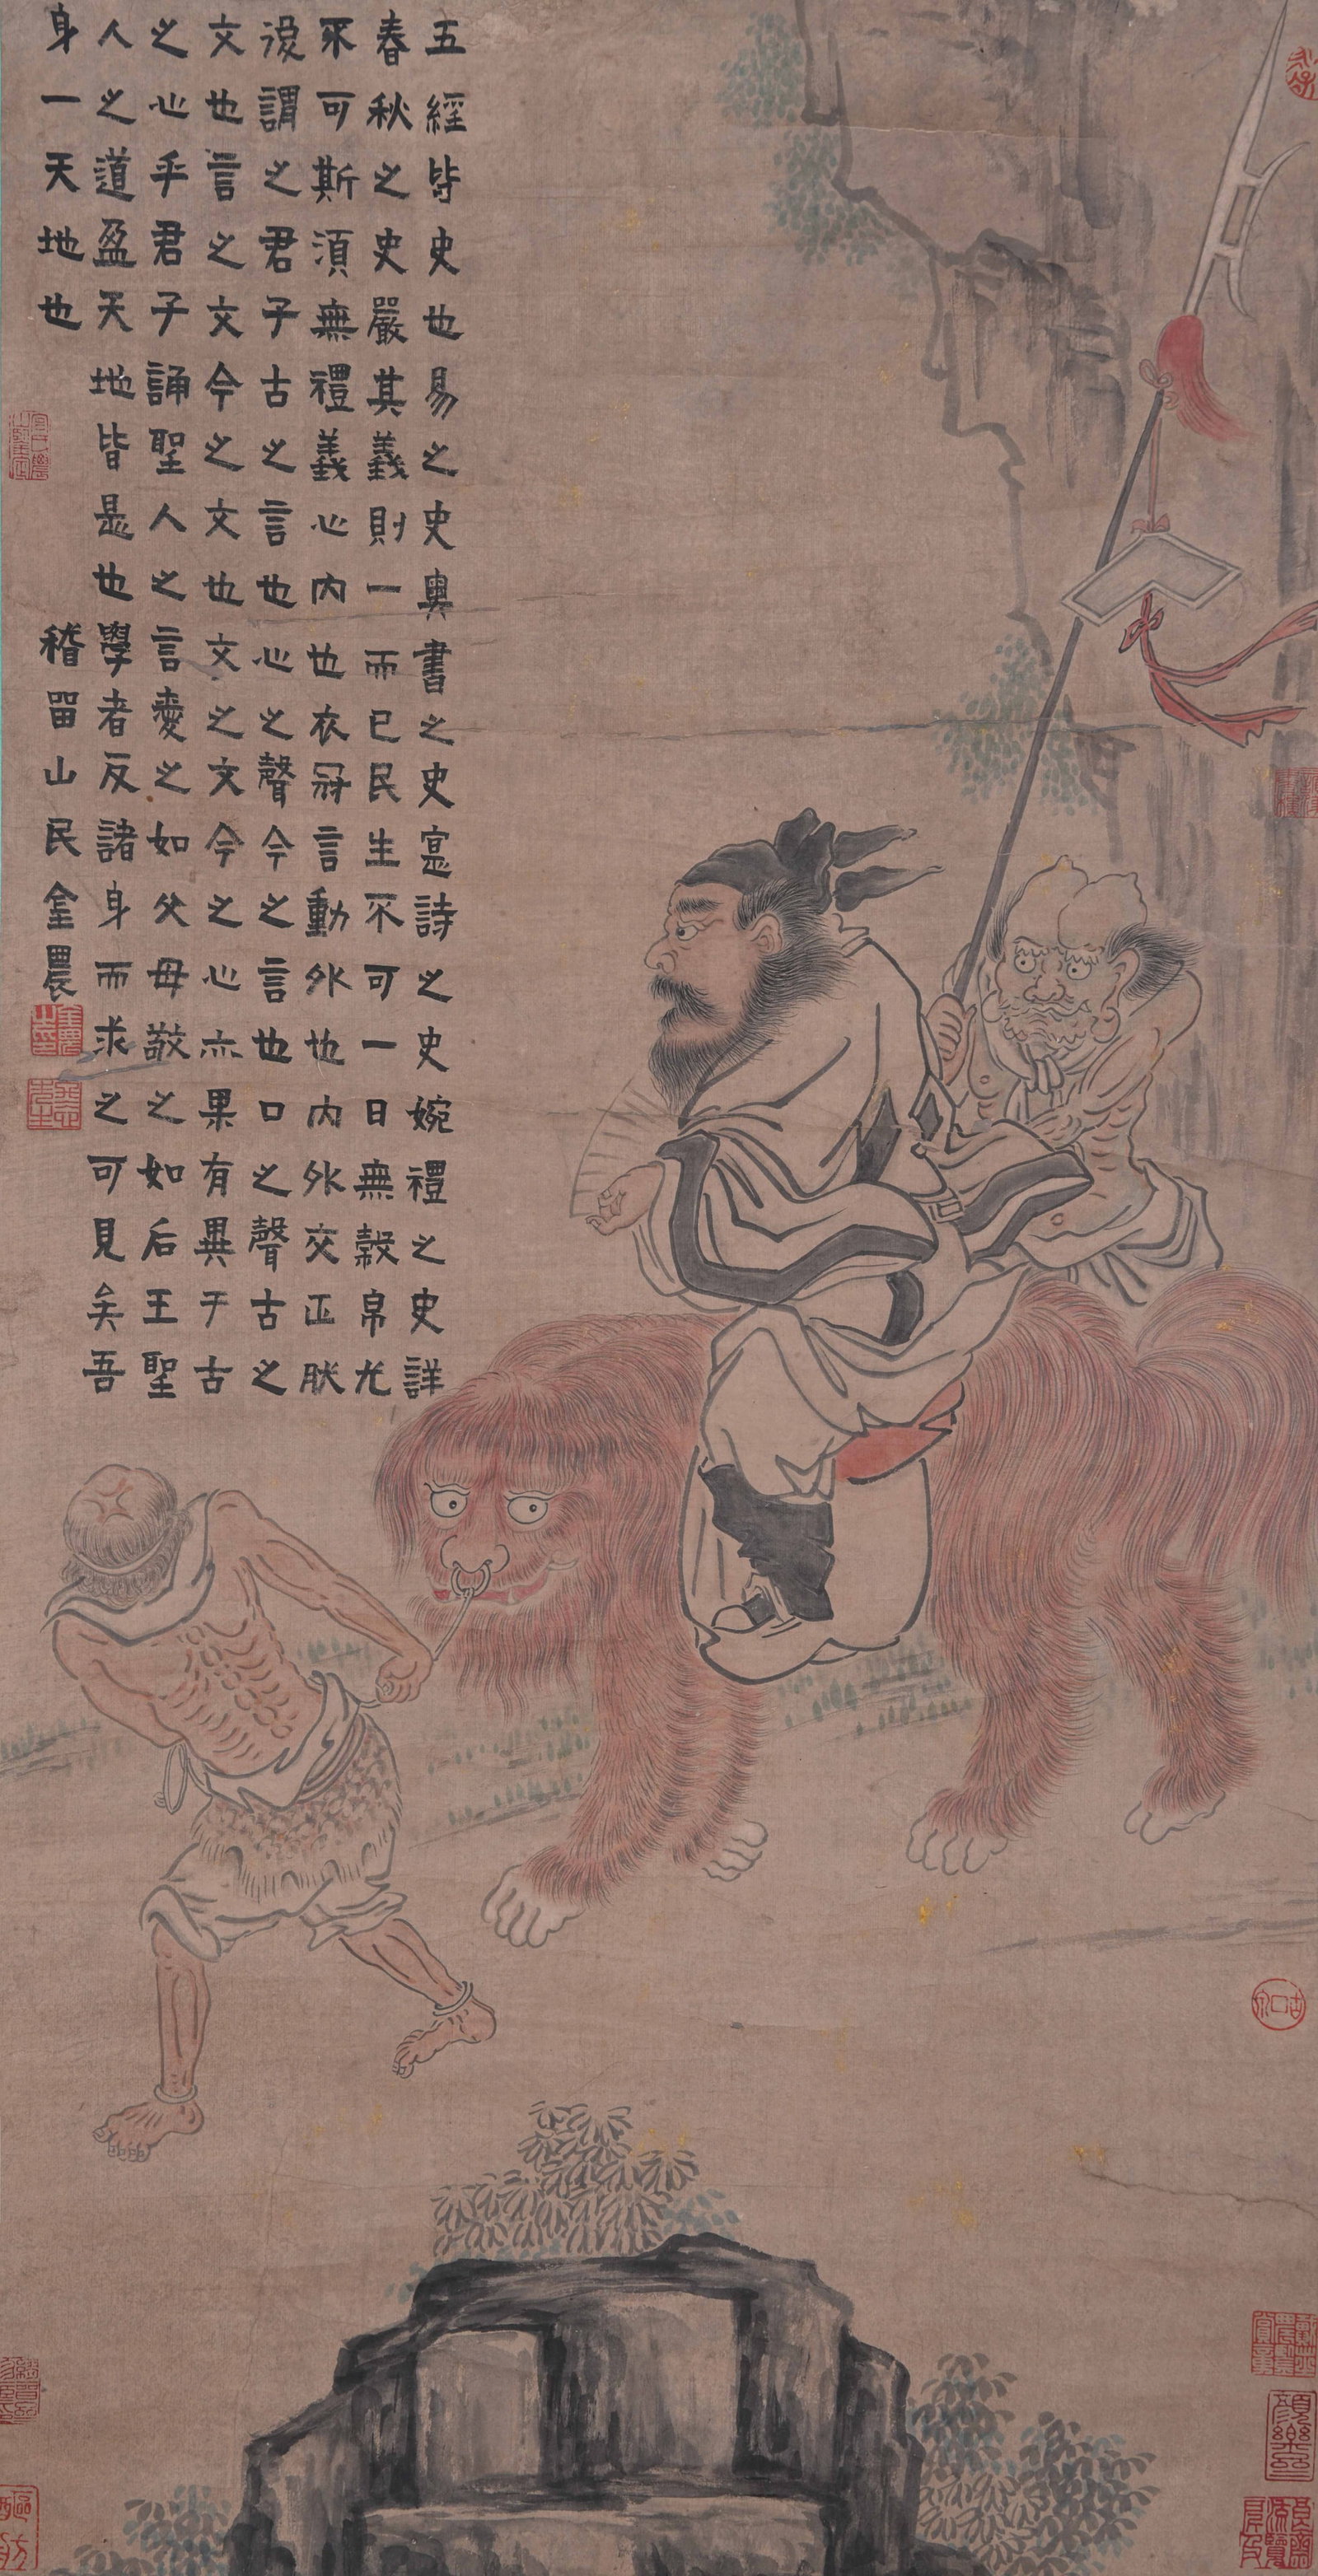 五經皆史也易之史奧書之史寔詩之史婉禮之史詳
春秋之史嚴其義則一而已民生不可一日無穀帛尤
不可斯湏無禮義心内也衣冠言動外也内外交正肰
後謂之君子古之言也心之聲今之言也口之聲古之
文也言之文今之文也文之文今之心亦果有異于古
之心乎君子誦聖人之言愛之如父母敬之如后王聖
人之道盈天地皆是也學者反諸身而求之可見矣吾
身一天地也
稽留山民金農